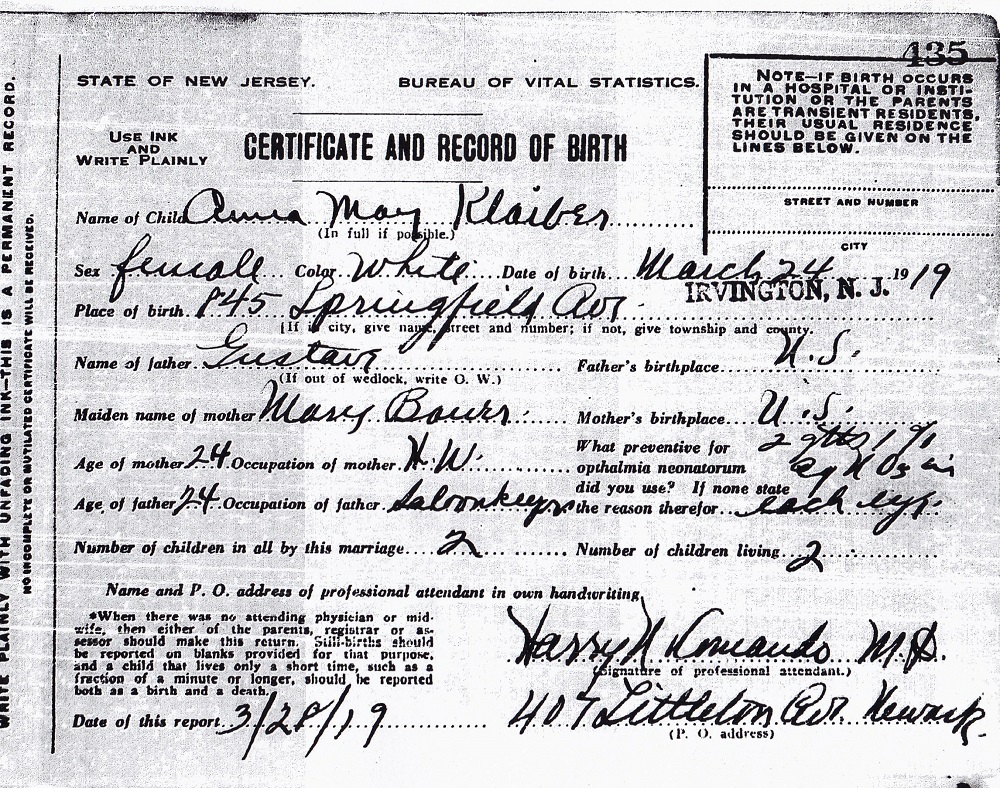 435
STATE OF NEW JERSEY. BUREAU OF VITAL STATISTICS.
NOTE—IF BIRTH OCCURS
IN A HOSPITAL OR INSTI-
TUTION OR THE PARENTS
ARE TRANSIENT RESIDENTS,
THEIR USUAL RESIDENCE
SHOULD BE GIVEN ON THE
LINES BELOW.
STREET AND NUMBER
CITY
USE INK
AND
WRITE PLAINLY
CERTIFICATE AND RECORD OF BIRTH
Name of Child Anna May Klaiber
(In full if possible.)
Sex female Color White Date of birth March 24 1919
IRVINGTON, N. J.
Place of birth 845 Springfield Ave
(If in city, give name, street and number; if not, give township and county.
Name of father Gustave Father's birthplace U.S.
(If out of wedlock, write O. W.)
Maiden name of mother Mary Bauer Mother's birthplace U.S.
Age of mother 24 Occupation of mother H.W.
What preventive for 2 gtts 1%
opthalmia neonatorum Ag N O3 in
did you use? If none state
the reason therefor each eye.
Age of father 24 Occupation of father Saloonkeeper
Number of children in all by this marriage 2 Number of children living 2
Name and P. O. address of professional attendant in own handwriting
*When there was no attending physician or mid-
wife, then either of the parents, registrar or as-
sessor should make this return. Still-births should
be reported on blanks provided for that purpose,
and a child that lives only a short time, such as a
fraction of a minute or longer, should be reported
both as a birth and a death.
Harry N Comando M.D.
(Signature of professional attendant.)
Date of this report 3/28/19
407 Littleton Ave. Newark.
(P. O. address)
WRITE PLAINLY WITH UNFADING INK—THIS IS A PERMANENT RECORD.
NO INCOMPLETE OR MUTILATED CERTIFICATE WILL BE RECEIVED.